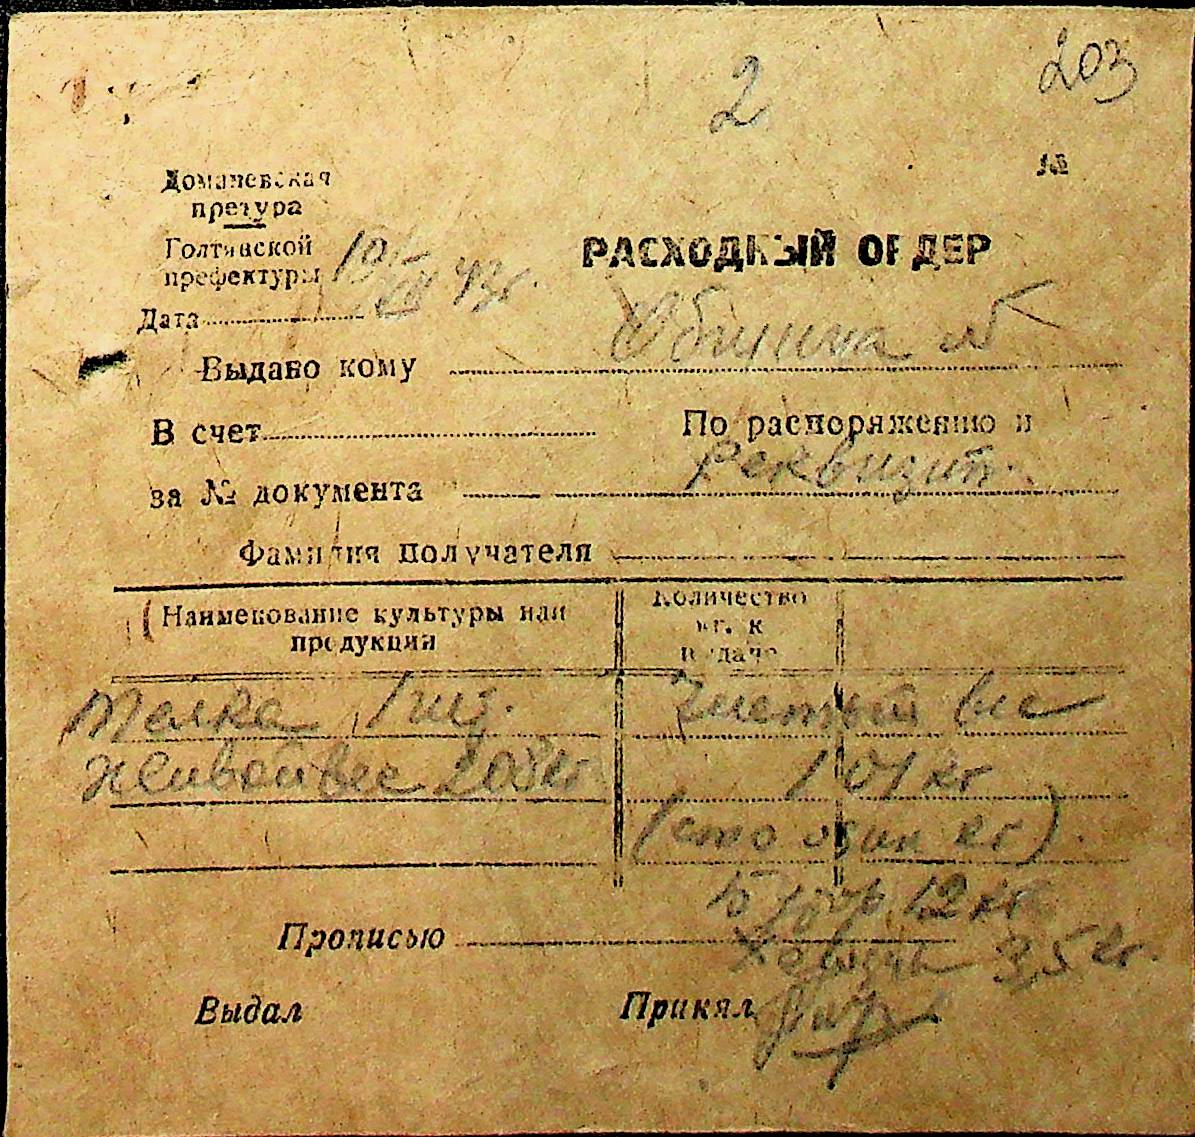 2
203
№
Доманевская
претура
Голтянской
префектуры
10/XII 43г.
РАСХОДНЫЙ ОРДЕР
Дата
Выдано кому
В счет
По распоряжению и
за № документа
реквизит.
Фамилия получателя
Наименование культуры или
продукции
Количество
кг. к
выдаче
Телка 1 шт.
Чистый вес
живой вес 208 кг
101 кг
(сто один кг).
12 кг
Прописью
3,5 кг.
Выдал
Принял